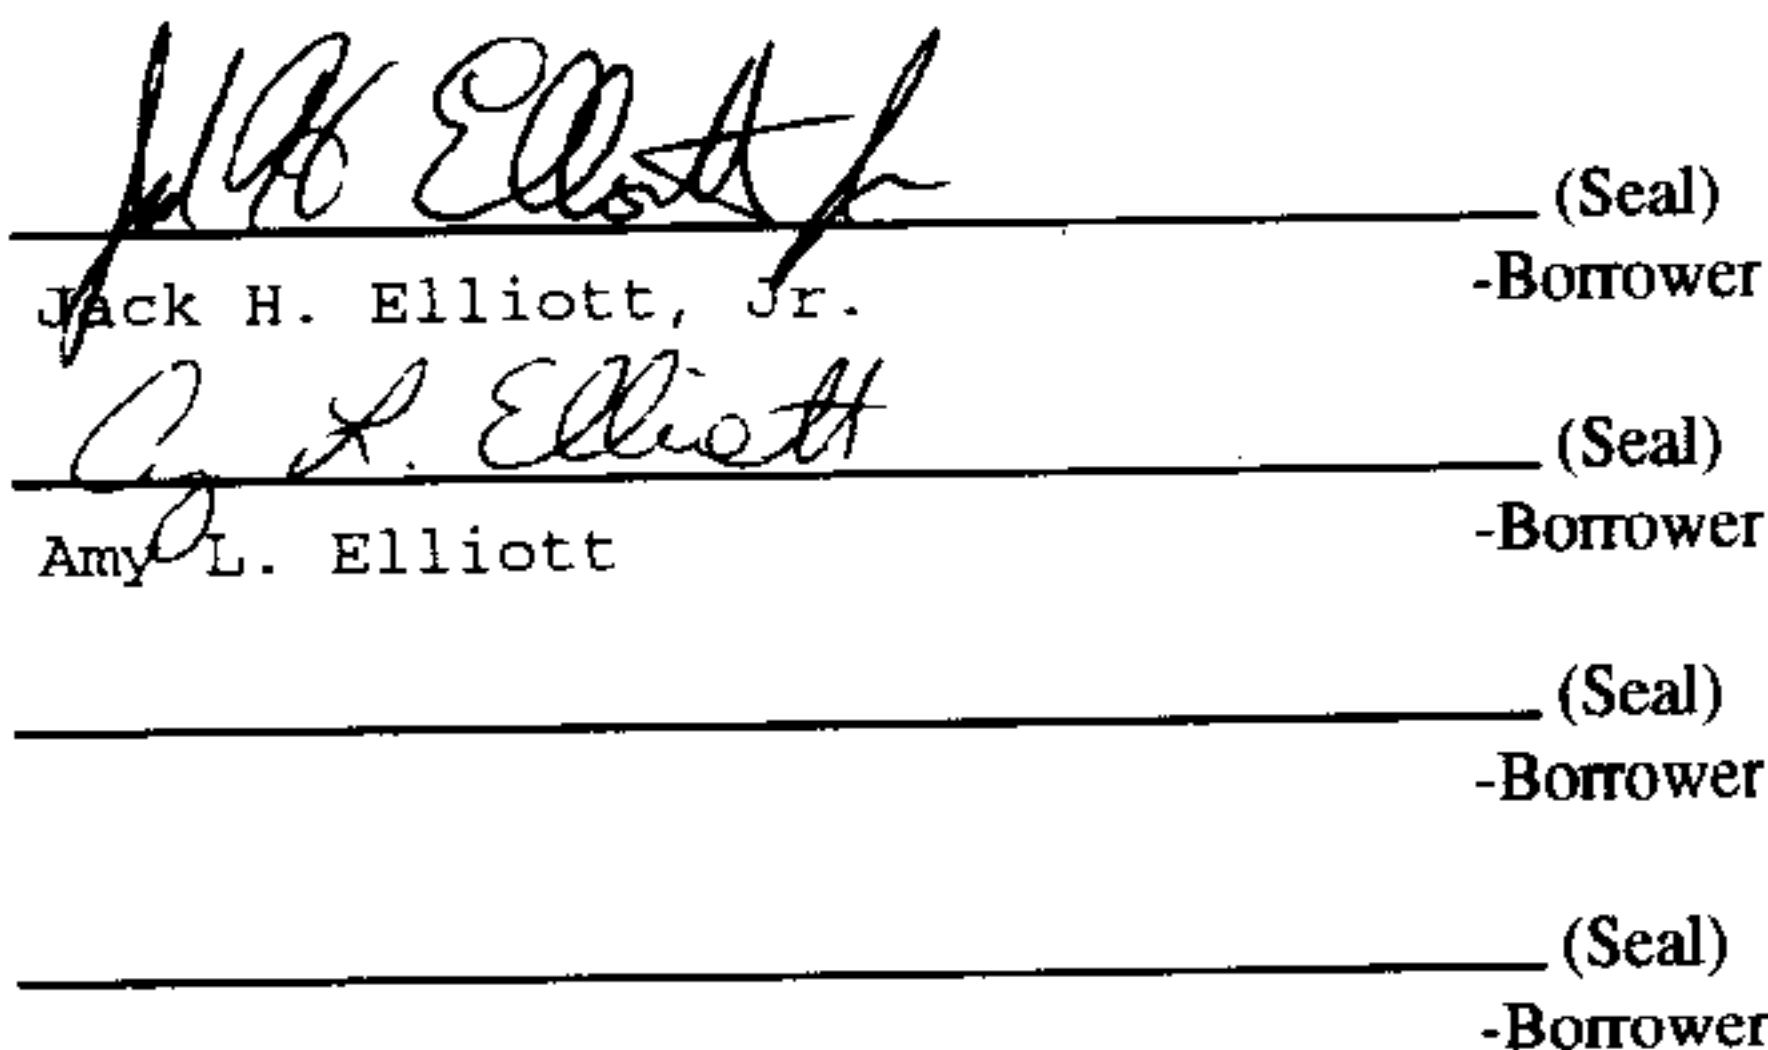 Jack H Elliott Jr (Seal)
-Borrower
Jack H. Elliott, Jr.
Amy L. Elliott (Seal)
-Borrower
Amy L. Elliott
(Seal)
-Borrower
(Seal)
-Borrower